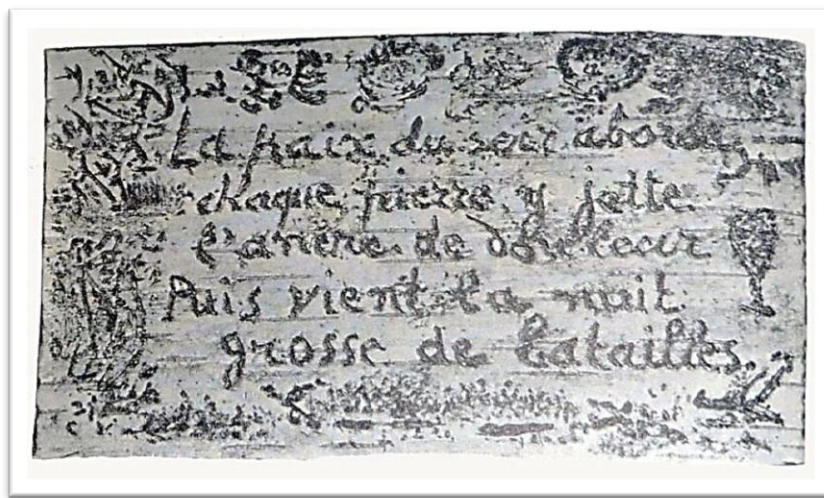 La paix du soir aborde
chaque pierre, y jette
l'ancre de douleur
Puis vient la nuit
grosse de batailles.